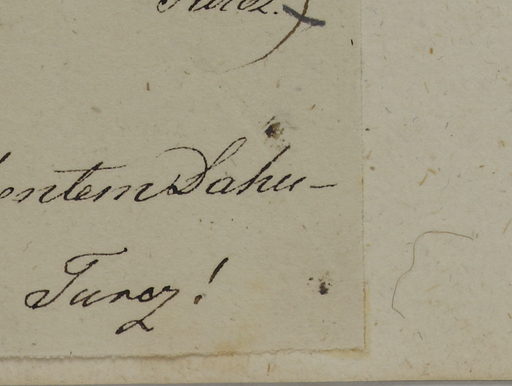 Turcz.
entem Dahu-
Turcz!